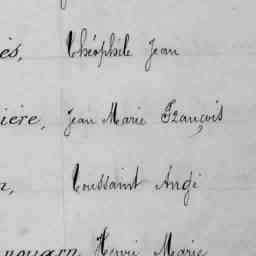 es, Théophile Jean
ière, Jean Marie François
n, Toussaint Ange
nouarn Henri Marie